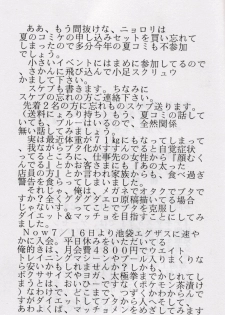 ああ、もう間抜けな、ニョロリは
夏のコミケの申し込みセットを買い忘れて
しまったので多分今年の夏コミも不参加
でしょう。
小さいイベントにはまめに参加してるので
さかんに飛び込んで小足スクリュウ
かまして下さい。
スケブも書きます。ちなみに
スケブの忘れの方ご連絡下さい。
先着2名の方に忘れものスケブ送ります。
(送料にょろり持ち)もう、夏コミの話して
いても、ブルーはいるので、全然関係
無い話してみましょう。
実は最近体重が71㎏にもなってしまって
、我ながらブタがだなあ～と自覚症状
んってるところに、仕事先の女性から「顔むく
んでるね」とか、近所のコンビニで「あの太った
店員の方」とか言われ家族からも、食べ過ぎ
警告を食らってしまいました。
それでなくても、俺は、メガネでオタクでブタで
すか？全くグダグダエロ原稿描いてる場合
じゃなっす。ってことでブタを克服し
ダイエット＆マッチョを目指すことにしてみ
ました。
Now7/16日より池袋エグザスに速や
かに入会。平日休みをいただいてる
俺的に、月会費が8000円でウェイト
トレーニングマシーンやプール入りまくりな
ら安いかもしれませんしか？かも。
ボクササイズやヨガ、太極拳までかじれてし
まうのだ。おいひ～ぞ～(ポケモン茶漬け
で)なわけで、どこまでつなずくかわからんで
すけどがんばってみますんで
ダイエットして、マッチョメンをめざしてみます